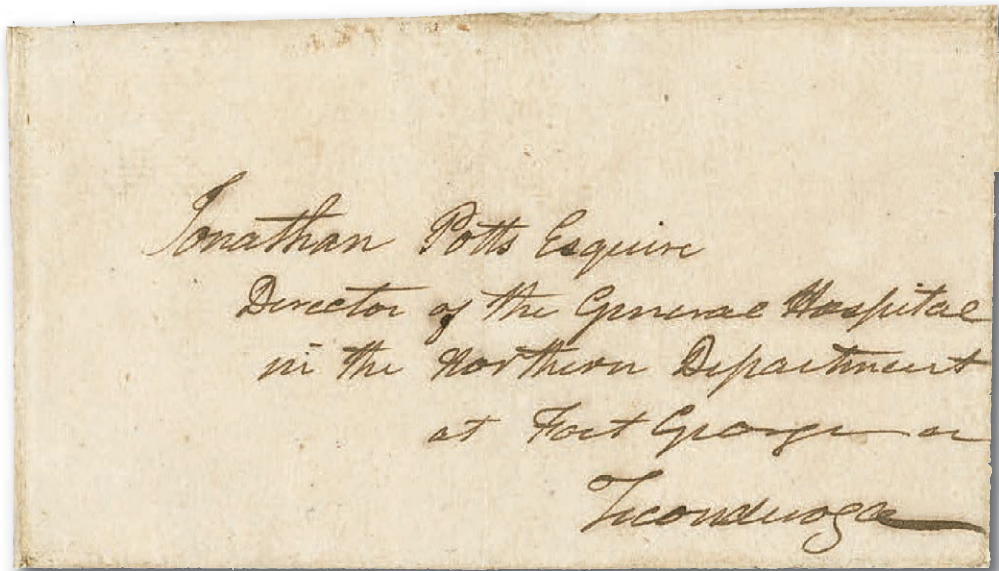 Jonathan Potts Esquire
Director of the General Hospital
in the Northern Department
at Fort George or
Ticonderoga